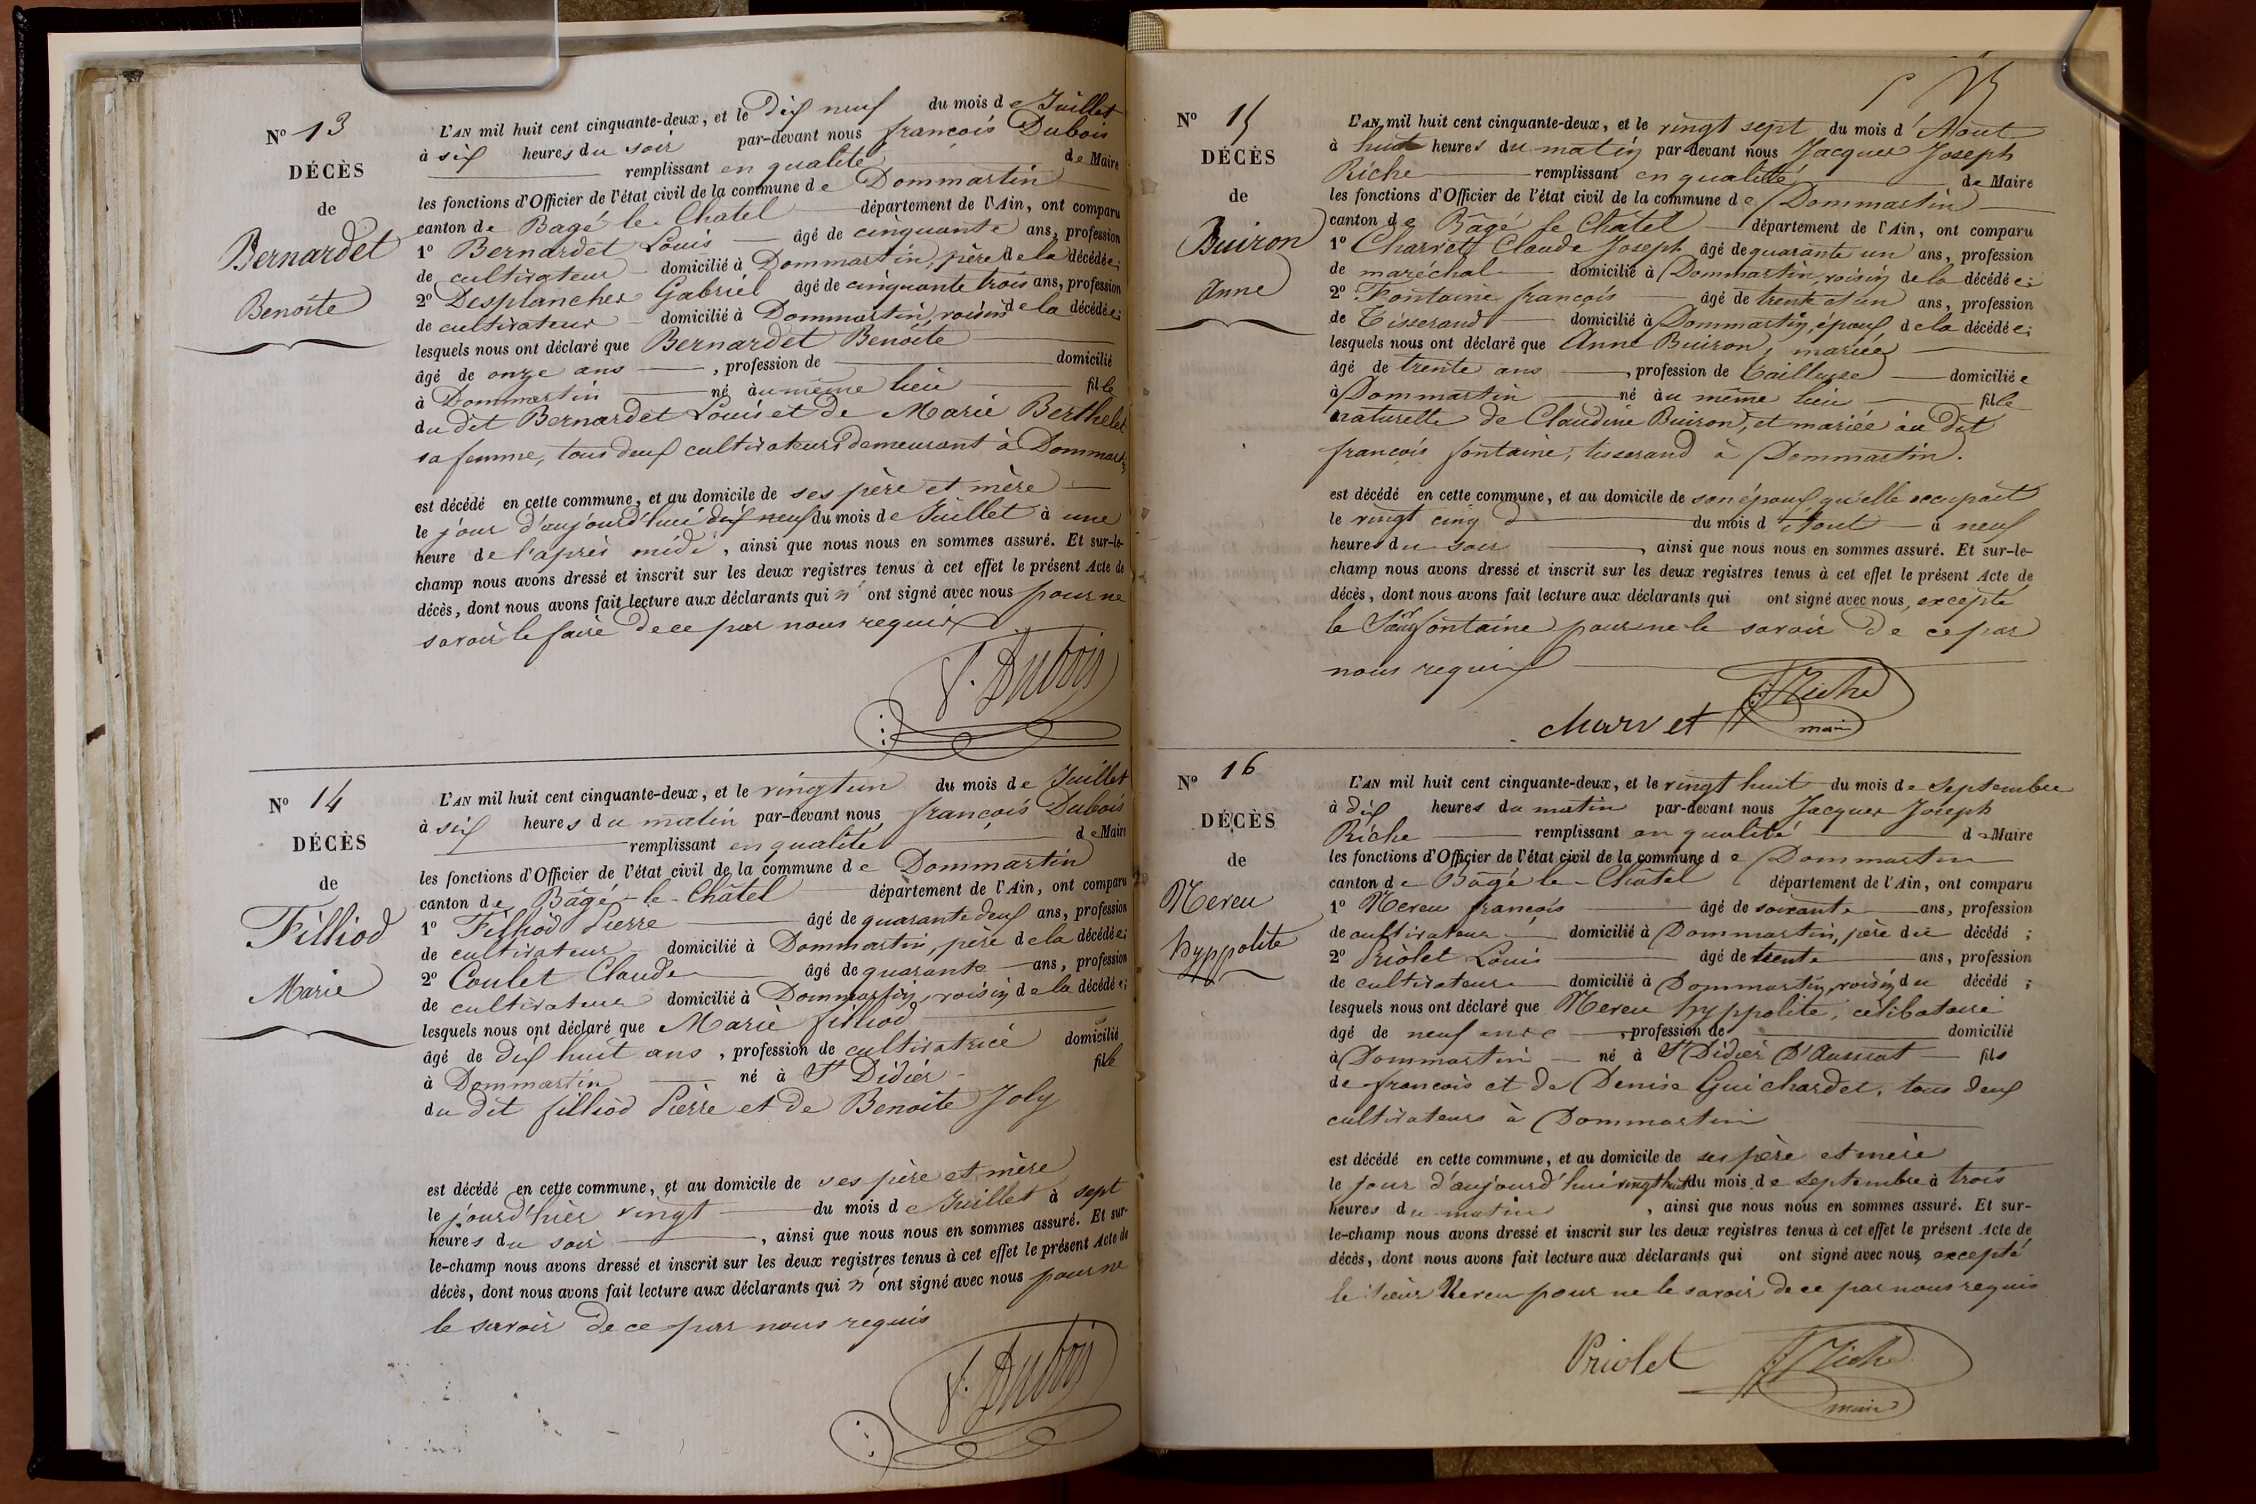 Nº 13
DÉCÈS
de
Bernardet
Benoite
L'AN mil huit cent cinquante-deux, et le dix neuf du mois de Juillet
à six heures du soir par-devant nous françois Dubois
remplissant en qualité de Maire
les fonctions d'Officier de l'état civil de la commune de Dommartin
canton de Bagé le Chatel département de l'Ain, ont comparu
1º Bernardet Louis âgé de cinquante ans, profession
de cultivateur domicilié à Dommartin, père de la décédée;
2º Desplanches Gabriel âgé de cinquante trois ans, profession
de cultivateur domicilié à Dommartin, voisin de la décédée;
lesquels nous ont déclaré que Bernardet Benoite
âgé de onze ans, profession de domicilié
à Dommartin né au même lieu fille
du dit Bernardet Louis et de Marie Berthelet
sa femme, tous deux cultivateurs demeurant à Dommartin
est décédé en cette commune, et au domicile de ses père et mère
le jour d'aujourd'hui dix neuf du mois de Juillet à une
heure de l'après midi, ainsi que nous nous en sommes assuré. Et sur-le-
champ nous avons dressé et inscrit sur les deux registres tenus à cet effet le présent Acte de
décès, dont nous avons fait lecture aux déclarants qui n'ont signé avec nous pour ne
savoir le faire de ce par nous requis
F. Dubois
Nº 14
DÉCÈS
de
Filliod
Marie
L'AN mil huit cent cinquante-deux, et le vingt un du mois de Juillet
à six heures du matin par-devant nous françois Dubois
remplissant en qualité de Maire
les fonctions d'Officier de l'état civil de la commune de Dommartin
canton de Bâgé-le-Châtel département de l'Ain, ont comparu
1º Filliod Pierre âgé de quarante deux ans, profession
de cultivateur domicilié à Dommartin, père de la décédée;
2º Coulet Claude âgé de quarante ans, profession
de cultivateur domicilié à Dommartin, voisin de la décédée;
lesquels nous ont déclaré que Marie filliod
âgé de dix huit ans, profession de cultivatrice domicilié
à Dommartin né à St Didier fille
du dit filliod Pierre et de Benoite Joly
est décédé en cette commune, et au domicile de ses père et mère
le jourd'hier vingt du mois de Juillet à sept
heures du soir, ainsi que nous nous en sommes assuré. Et sur-
le-champ nous avons dressé et inscrit sur les deux registres tenus à cet effet le présent Acte de
décès, dont nous avons fait lecture aux déclarants qui n'ont signé avec nous pour ne
le savoir de ce par nous requis
F. Dubois
Nº 15
DÉCÈS
de
Buiron
Anne
L'AN mil huit cent cinquante-deux, et le vingt sept du mois d'Aout
à huit heures du matin par-devant nous Jacques Joseph
Riche remplissant en qualité de Maire
les fonctions d'Officier de l'état civil de la commune de Dommartin
canton de Bâgé le Châtel département de l'Ain, ont comparu
1º Charvet Claude Joseph âgé de quarante un ans, profession
de maréchal domicilié à Dommartin, voisin de la décédée;
2º Fontaine françois âgé de trente et un ans, profession
de Tisserand domicilié à Dommartin, époux de la décédée;
lesquels nous ont déclaré que Anne Buiron, mariée
âgé de trente ans, profession de tailleuse domiciliée
à Dommartin né au même lieu fille
naturelle de Claudine Buiron, et mariée au dit
françois fontaine, tisserand à Dommartin.
est décédé en cette commune, et au domicile de son époux qu'elle occupait
le vingt cinq du mois d'Aout à neuf
heures du soir, ainsi que nous nous en sommes assuré. Et sur-le-
champ nous avons dressé et inscrit sur les deux registres tenus à cet effet le présent Acte de
décès, dont nous avons fait lecture aux déclarants qui ont signé avec nous, excepté
le Sieur fontaine pour ne le savoir de ce par
nous requis
J Riche
maire
charvet
Nº 16
DÉCÈS
de
Nereu
hyppolite
L'AN mil huit cent cinquante-deux, et le vingt huit du mois de Septembre
à dix heures du matin par-devant nous Jacques Joseph
Riche remplissant en qualité de Maire
les fonctions d'Officier de l'état civil de la commune de Dommartin
canton de Bâgé-le-Châtel département de l'Ain, ont comparu
1º Nereu françois âgé de soixante ans, profession
de cultivateur domicilié à Dommartin, père du décédé;
2º Priolet Louis âgé de trente ans, profession
de cultivateur domicilié à Dommartin, voisin du décédé;
lesquels nous ont déclaré que Nereu hyppolite, célibataire
âgé de neuf ans, profession de domicilié
à Dommartin né à St Didier D'Aussiat fils
de françois et de Denise Guichardet, tous deux
cultivateurs à Dommartin
est décédé en cette commune, et au domicile de ses père et mère
le jour d'aujourd'hui vingt huit du mois de Septembre à trois
heures du matin, ainsi que nous nous en sommes assuré. Et sur-
le-champ nous avons dressé et inscrit sur les deux registres tenus à cet effet le présent Acte de
décès, dont nous avons fait lecture aux déclarants qui ont signé avec nous, excepté
le sieur Nereu pour ne le savoir de ce par nous requis
Priolet
J Riche
maire